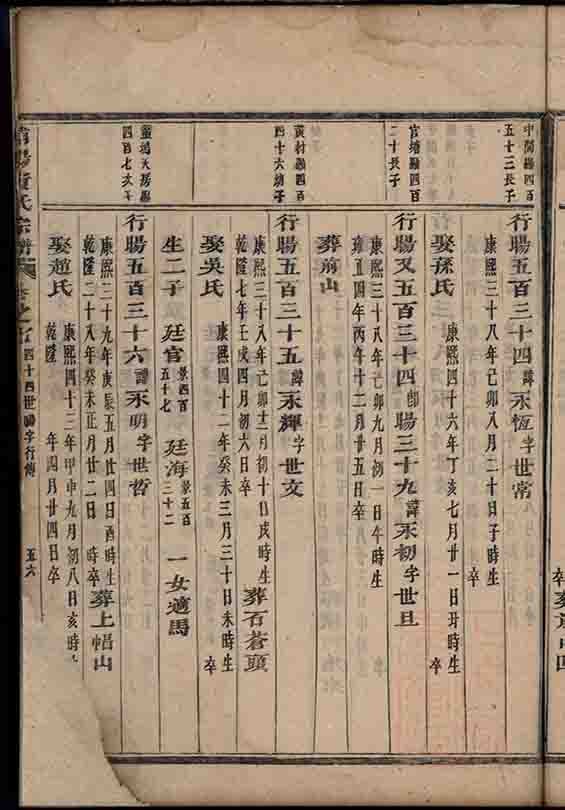 中間賜四百
五十三長子
行賜五百三十四諱永恆字世常
康熙三十八年己卯八月二十日子時生
卒
娶孫氏
康熙四十六年丁亥七月廿一日丑時生
卒
官塘賜四百
二十長子
行賜又五百三十四即賜三十九諱永初字世旦
康熙三十八年己卯九月初一日午時生
雍正四年丙午十二月廿五日卒
葬前山
黃村賜四百
四十六繼子
行賜五百三十五諱永輝字世文
康熙三十八年己卯十二月初十日戌時生
乾隆七年壬戌四月初六日卒
葬石蒼頭
娶吳氏
康熙四十二年癸未三月三十日未時生
卒
生二子
廷官景四百五十七
廷海景五百三十二
一女適馬
四百七次子
行賜五百三十六諱永明字世哲
康熙三十九年庚辰五月廿四日酉時生
乾隆二十八年癸未正月廿二日
時卒
葬上山
娶趙氏
康熙四十三年甲申九月初八日亥時
乾隆
年四月廿四日卒
黃氏宗譜
四十四世賜字行傳
五六
卒葬
四